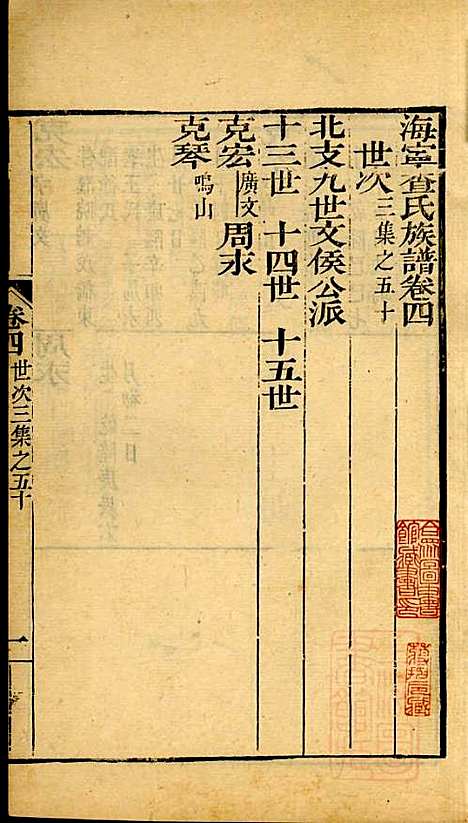 海寧查氏族譜卷四
世次三集之五十
北支九世文侯公派
十三世 十四世 十五世
克宏 廣文 周永
克琴 鳴山
卷四 世次三集之五十 一